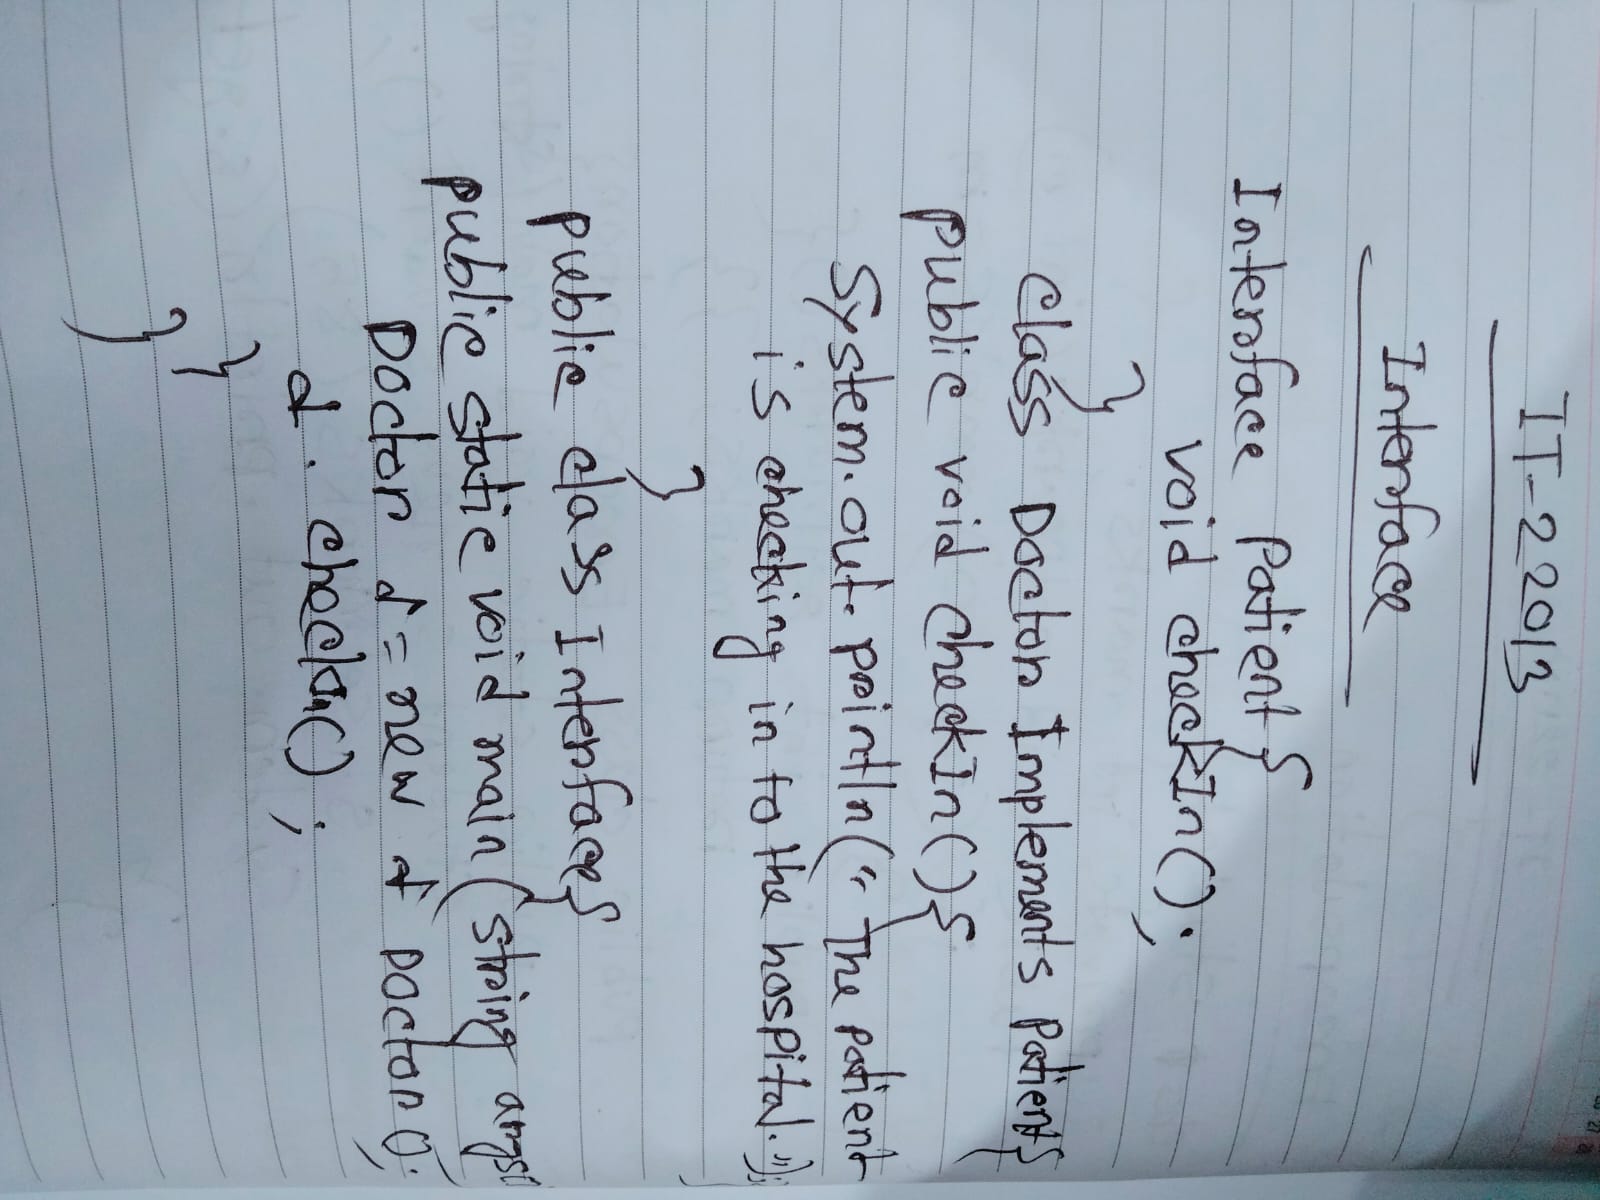 IT-22013
Interface
Interface Patient{
void checkIn();
}
class Doctor Implements Patient{
public void checkIn(){
System.out.println("The patient
is checking in to the hospital.");
}
public class Interface{
public static void main(string args
Doctor d = new Doctor();
d. checkIn();
}
}